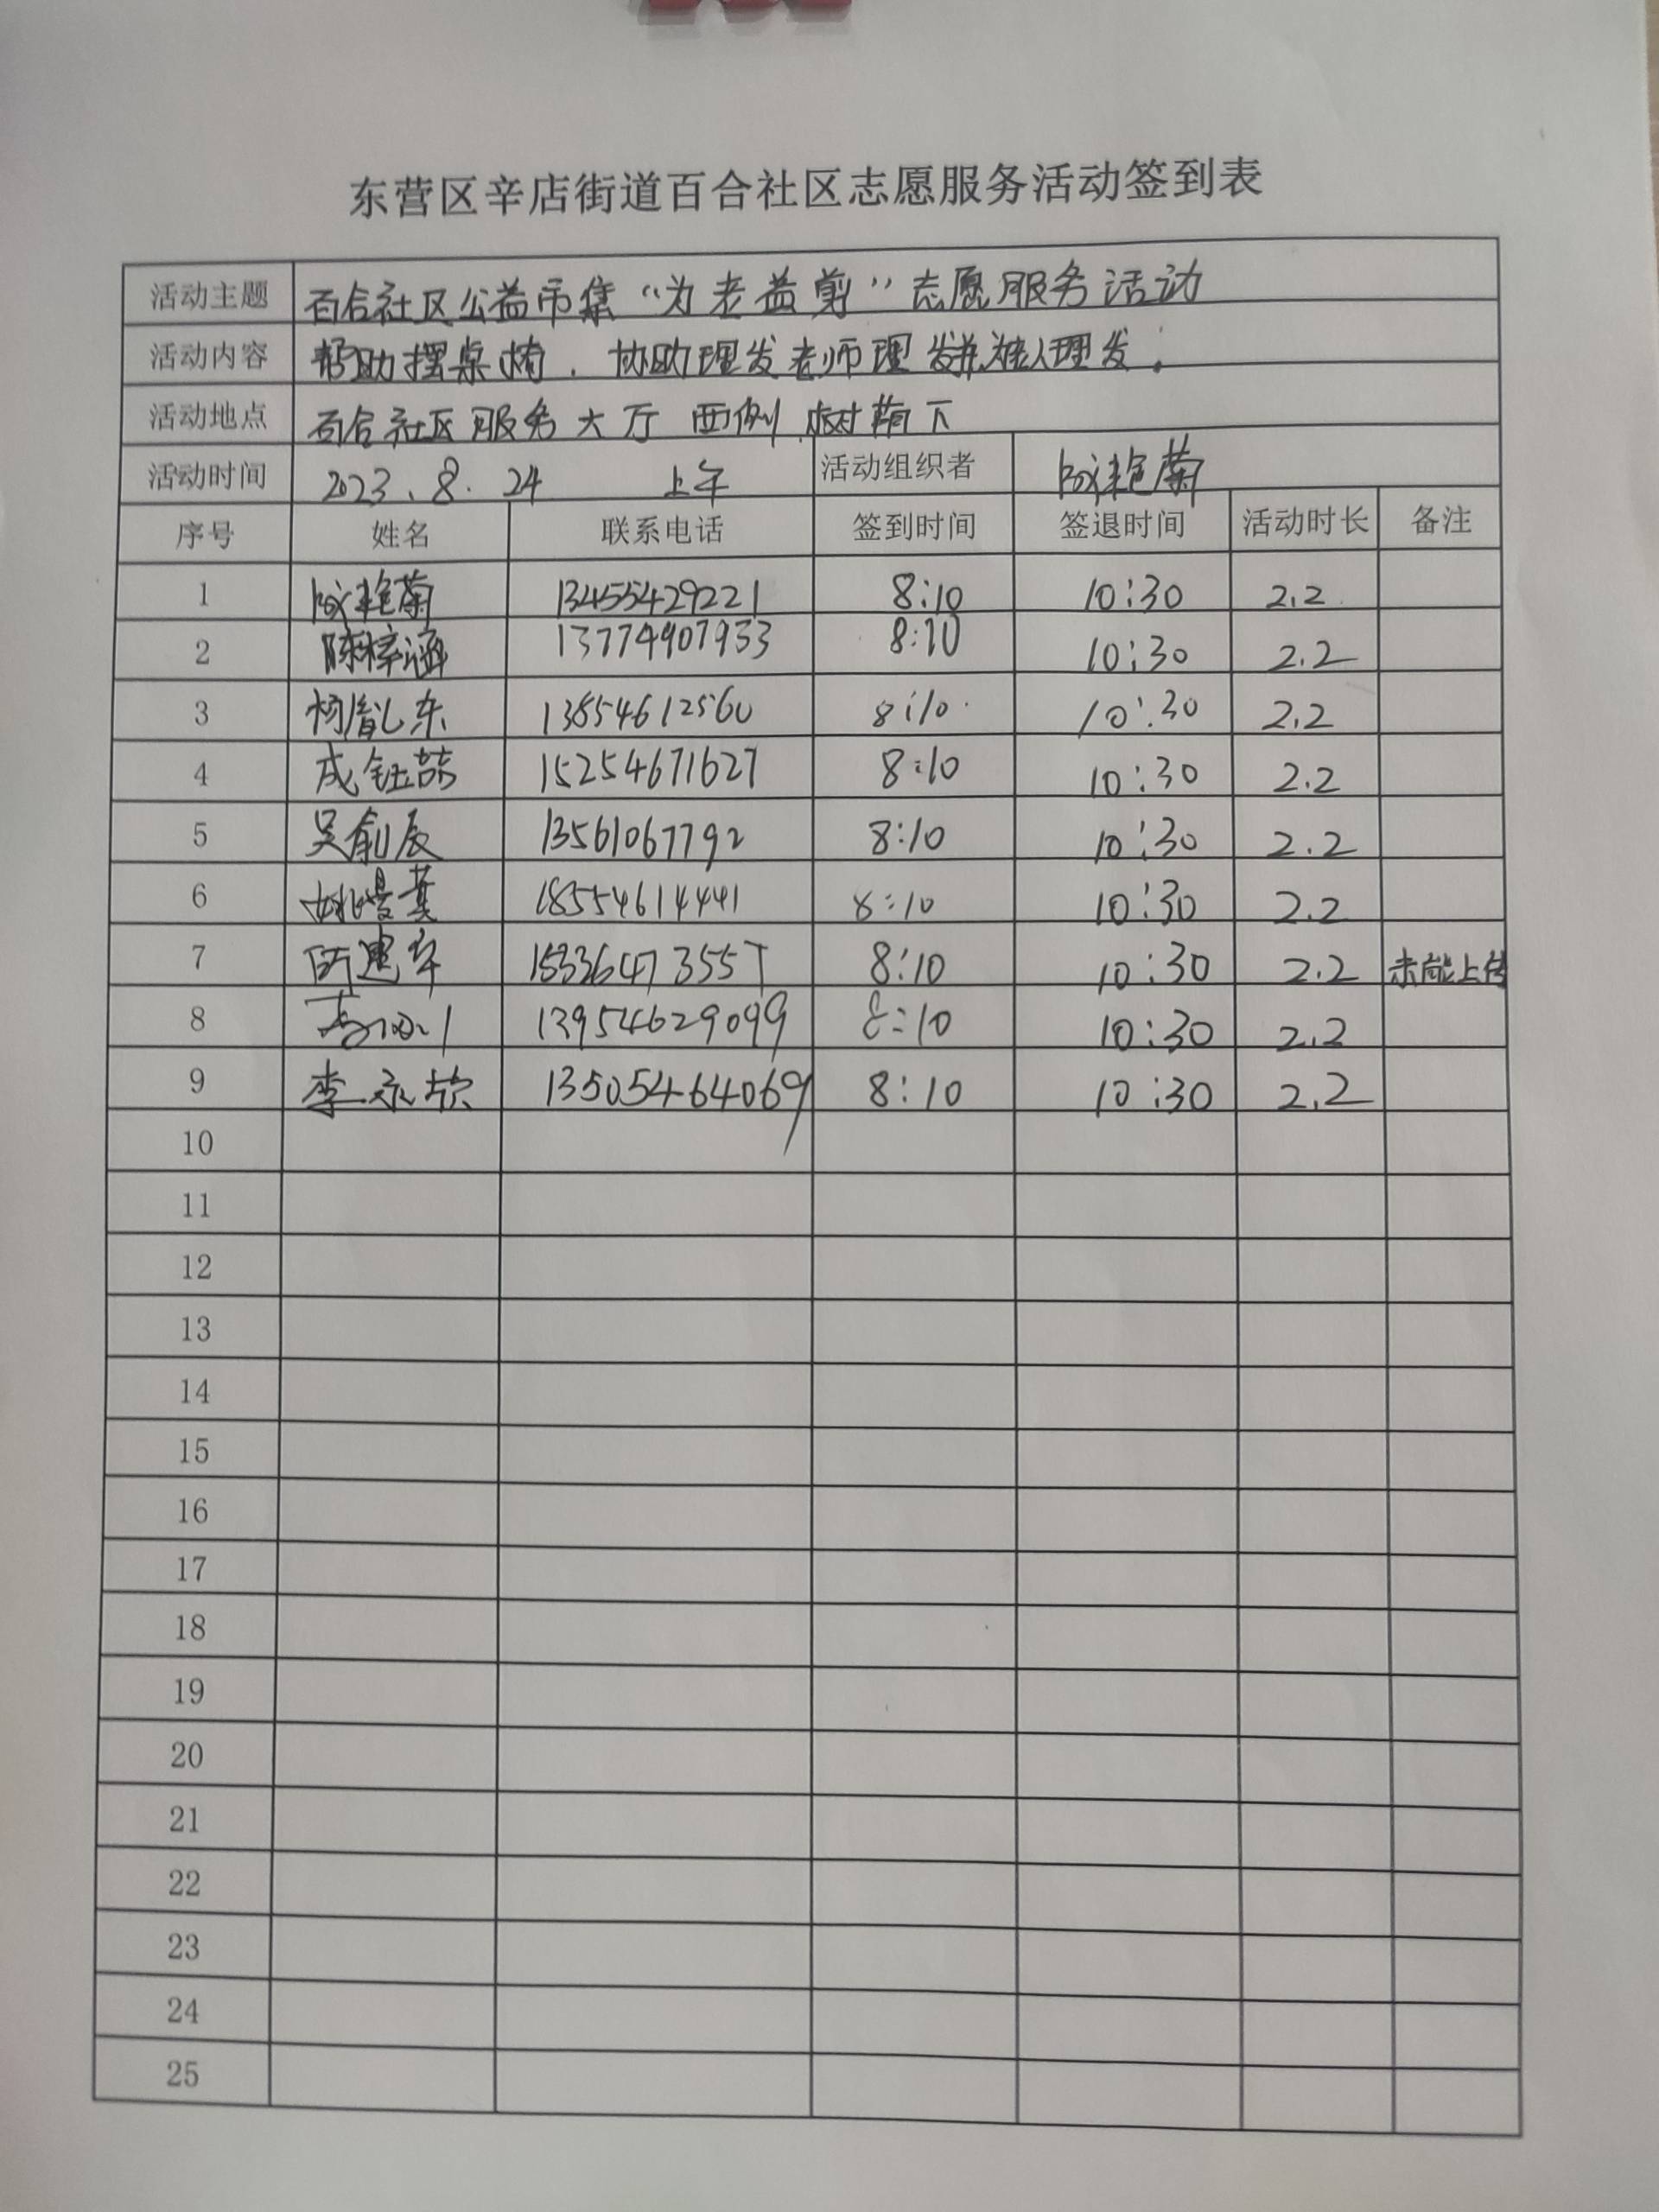 东营区辛店街道百合社区志愿服务活动签到表
活动主题 百合社区公益市集“为老益剪”志愿服务活动
活动内容 帮助摆桌椅，协助理发老师理发并为老人理发。
活动地点 百合社区服务大厅西侧树荫下
活动时间 2023.8.24 上午 活动组织者 艳菊
序号 姓名 联系电话 签到时间 签退时间 活动时长 备注
1 艳菊 13455429221 8:10 10:30 2.2
2 陈梓涵 13774907933 8:10 10:30 2.2
3 杨胤东 13854612560 8:10 10:30 2.2
4 成钰喆 15254671627 8:10 10:30 2.2
5 吴俞辰 13561067792 8:10 10:30 2.2
6 18554614441 8:10 10:30 2.2
7 建军 15336473557 8:10 10:30 2.2 未能上传
8 13954629099 8:10 10:30 2.2
9 李永欣 13505464069 8:10 10:30 2.2
10
11
12
13
14
15
16
17
18
19
20
21
22
23
24
25